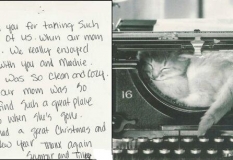 you for taking such
of us. When our mom
We really enjoyed
with you and Maddie.
was so clean and cozy.
our mom was so
find such a great place
when she's gone.
a great Christmas and
year Thank again
16